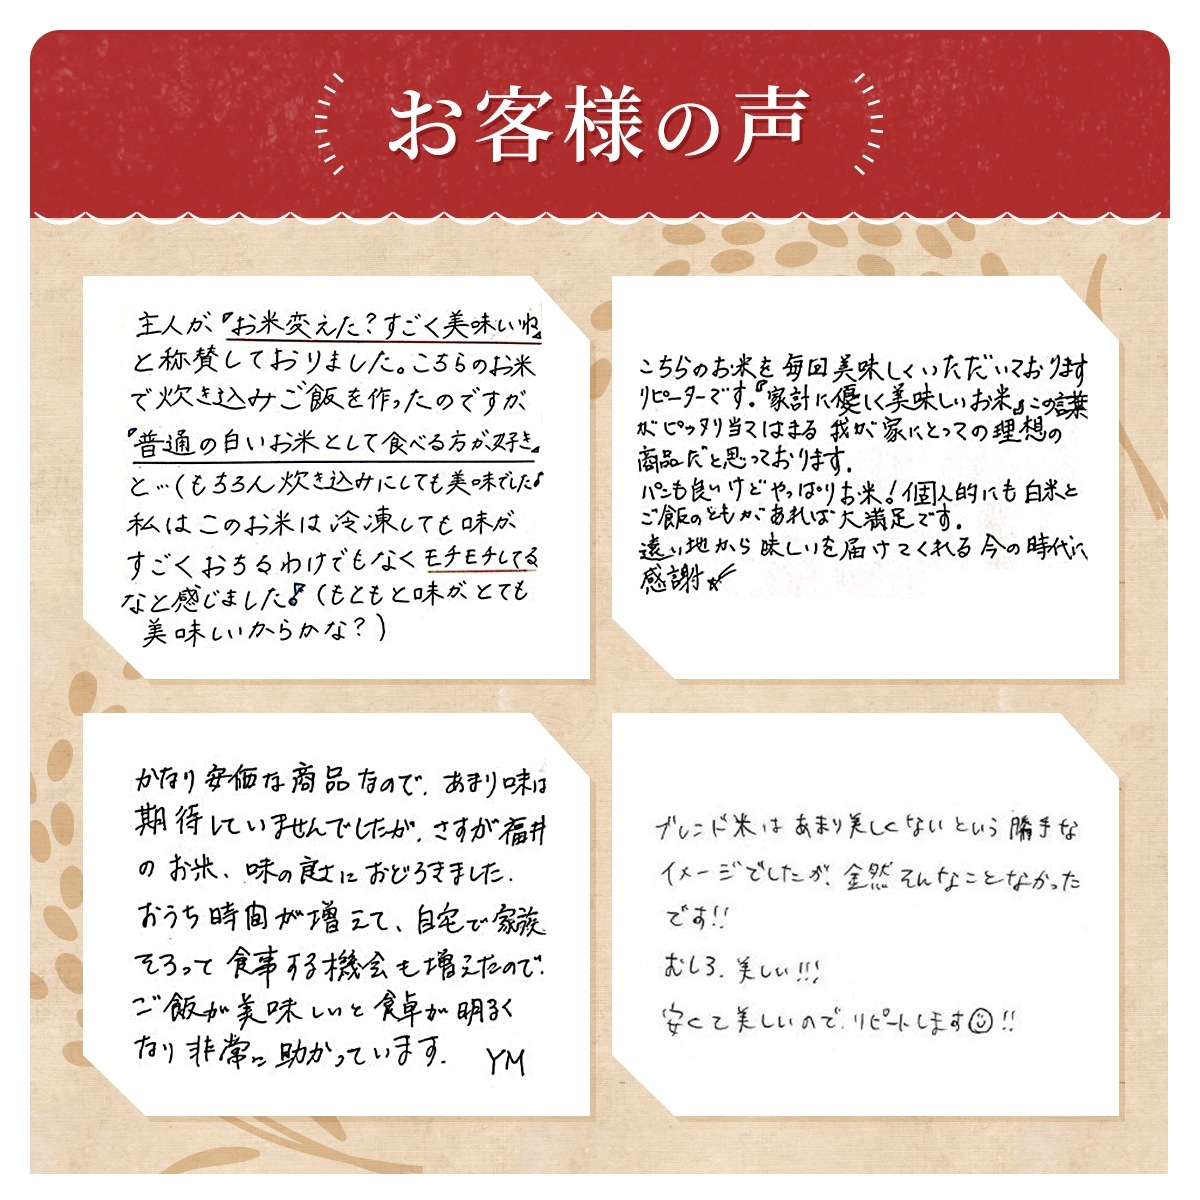 お客様の声
主人が、『お米変えた？すごく美味しいね』
と称賛しておりました。こちらのお米
で炊き込みご飯を作ったのですが
『普通の白いお米として食べる方が好き』
と…(もちろん炊き込みにしても美味でした♪
私はこのお米は冷凍しても味が
すごくおちるわけでもなくモチモチしてる
なと感じました♪(もともと味がとても
美味しいからかな？)
こちらのお米を毎回美味しくいただいております
リピーターです。『家計に優しく美味しいお米』この言葉
がピッタリ当てはまる我が家にとっての理想の
商品だと思っております。
パンも良いけどやっぱりお米！個人的にも白米と
ご飯のともがあれば大満足です。
遠い地から味しいを届けてくれる今の時代に
感謝☆
かなり安価な商品なので、あまり味は
期待していませんでしたが、さすが福井
のお米、味の良さにおどろきました。
おうち時間が増えて、自宅で家族
そろって食事する機会も増えたので、
ご飯が美味しいと食卓が明るく
なり非常に助かっています。 YM
ブレンド米はあまり美しくないという勝手な
イメージでしたが、全然そんなことなかった
です!!
むしろ、美しい!!!
安くて美しいので、リピートします☺!!